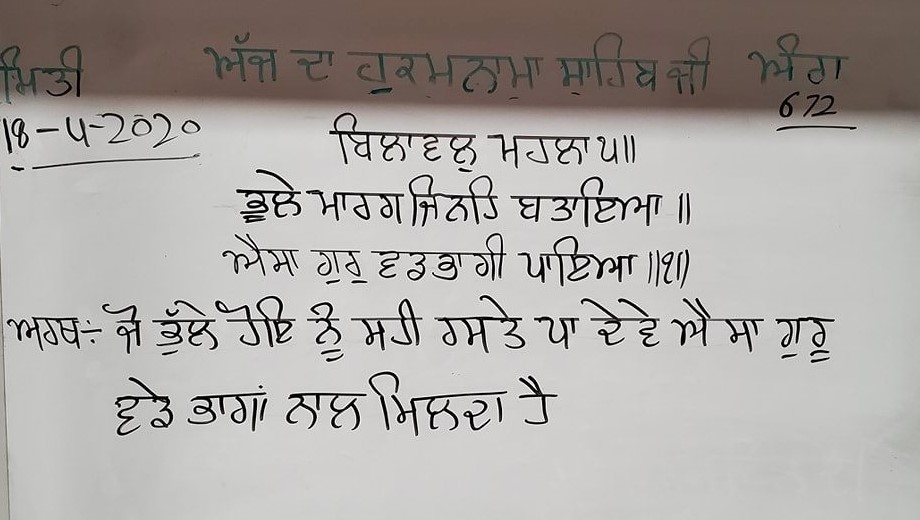 ਮਿਤੀ ਅੱਜ ਦਾ ਹੁਕਮਨਾਮਾ ਸਾਹਿਬ ਜੀ ਅੰਗ
18-4-2020 672
ਬਿਲਾਵਲੁ ਮਹਲਾ ੫॥
ਭੂਲੇ ਮਾਰਗ ਜਿਨਹਿ ਬਤਾਇਆ॥
ਐਸਾ ਗੁਰੁ ਵਡਭਾਗੀ ਪਾਇਆ॥੧॥
ਅਰਥ:- ਜੋ ਭੁੱਲੇ ਹੋਇ ਨੂੰ ਸਹੀ ਰਸਤੇ ਪਾ ਦੇਵੇ ਐਸਾ ਗੁਰੂ
ਵਡੇ ਭਾਗਾਂ ਨਾਲ ਮਿਲਦਾ ਹੈ